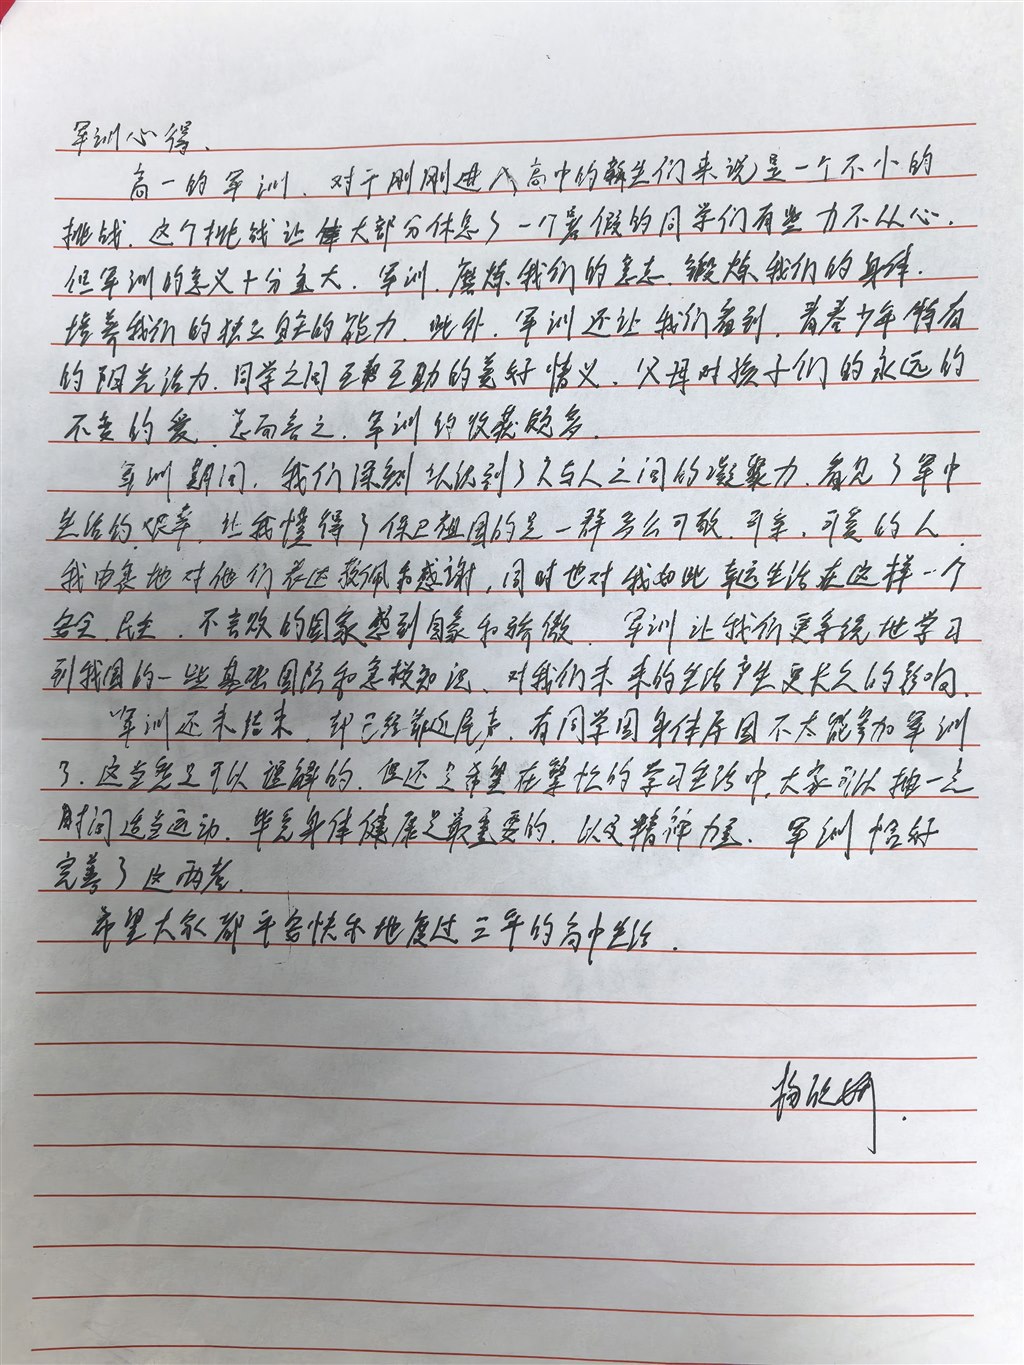 军训心得.
高一的军训.对于刚刚进入高中的新生们来说是一个不小的
挑战.这个挑战让大部分休息了一个暑假的同学们有些力不从心.
但军训的意义十分重大.军训.磨炼我们的意志.锻炼我们的身体.
培养我们的独立自主的能力.此外.军训还让我们看到.青春少年特有
的阳光活力.同学之间互帮互助的美好情义.父母对孩子们的永远的
不变的爱.总而言之.军训的收获颇多.
军训期间.我们深刻认识到了人与人之间的凝聚力.看见了军中
生活的艰辛.让我懂得了保卫祖国的是一群多么可敬.可亲.可爱的人.
我由衷地对他们表达敬佩和感谢,同时也对我如此幸运生活在这样一个
安全.民主.不言败的国家感到自豪和骄傲.军训让我们更系统地学习
到我国的一些基础国防和急救知识、对我们未来的生活产生更长久的影响.
军训还未结束.却已经靠近尾声.有同学因身体原因不太能参加军训
了.这当然是可以理解的.但还是希望在繁忙的学习生活中,大家可以抽一点
时间适当运动.毕竟身体健康是最重要的.以及精神力量.军训恰好
完善了这两者.
希望大家都平安快乐地度过三年的高中生活.
杨欣妍.